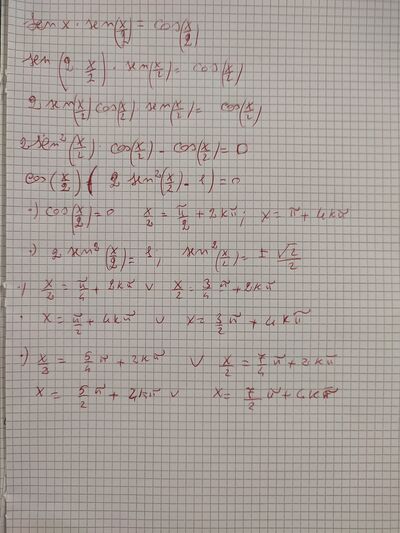 sen x · sen(x/2) = cos(x/2)
sen(2 x/2) · sen(x/2) = cos(x/2)
2 sen(x/2) cos(x/2) sen(x/2) = cos(x/2)
2 sen²(x/2) · cos(x/2) - cos(x/2) = 0
cos(x/2) ( 2 sen²(x/2) - 1) = 0
·) cos(x/2) = 0 x/2 = π/2 + 2kπ ; x = π + 4kπ
·) 2 sen²(x/2) = 1 ; sen²(x/2) = ± √2/2
·) x/2 = π/4 + 2kπ ∨ x/2 = 3/4 π + 2kπ
· x = π/2 + 4kπ ∨ x = 3/2 π + 4kπ
·) x/2 = 5/4 π + 2kπ ∨ x/2 = 7/4 π + 2kπ
x = 5/2 π + 4kπ ∨ x = 7/2 π + 4kπ